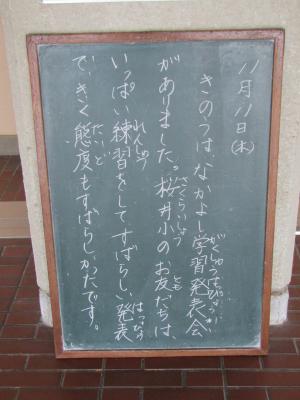 11月11日(木)
きのうは、なかよし学習発表会
がありました。桜井小のお友だちは、
いっぱい練習をしてすばらしい発表
で、きく態度もすばらしかったです。